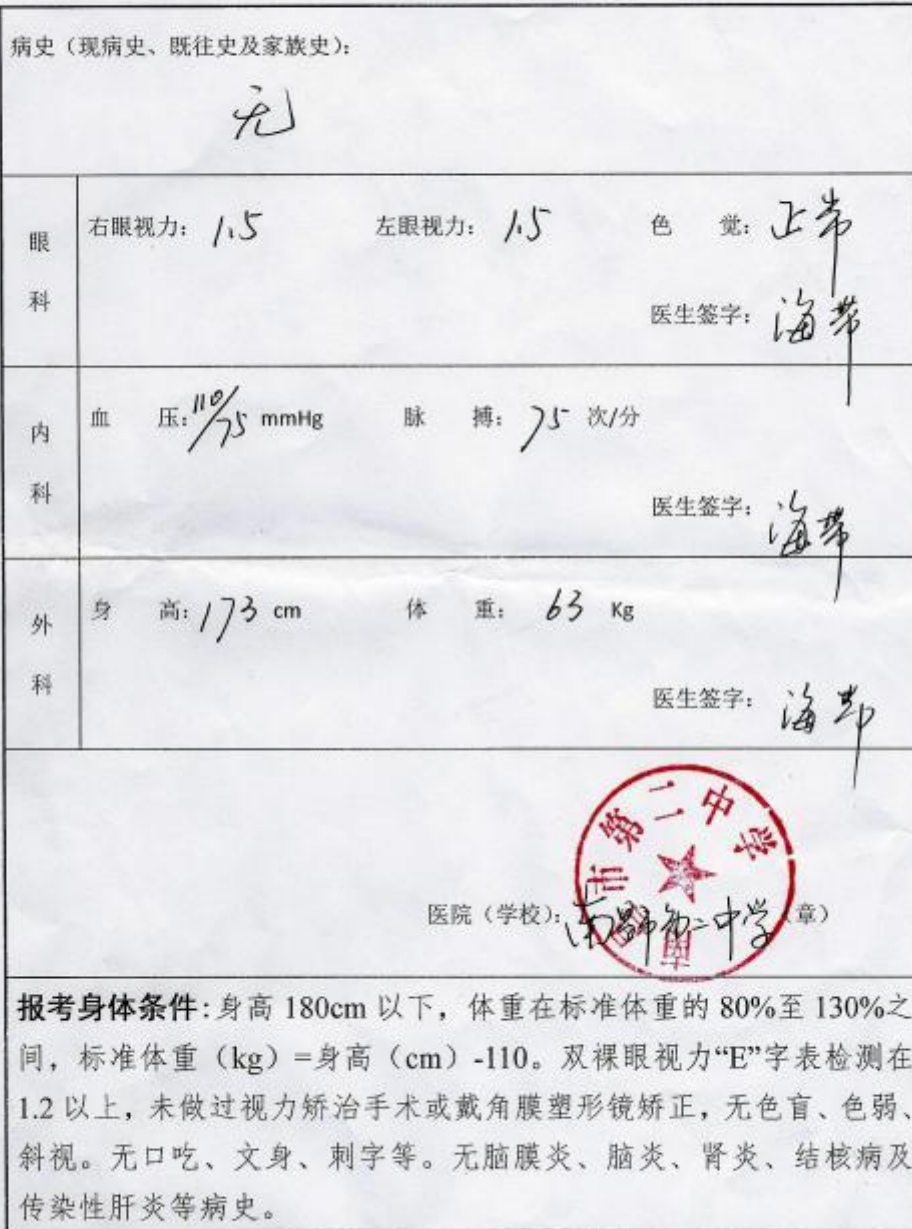 病史（现病史、既往史及家族史）：
无
眼科
右眼视力： 1.5 左眼视力： 1.5 色 觉： 正常
医生签字： 海带
内科
血 压： 110/75 mmHg 脉 搏： 75 次/分
医生签字： 海带
外科
身 高： 173 cm 体 重： 63 Kg
医生签字： 海带
南昌市第二中学
医院（学校）： 南昌市第二中学（章）
报考身体条件：身高 180cm 以下，体重在标准体重的 80%至 130%之
间，标准体重（kg）=身高（cm）-110。双裸眼视力“E”字表检测在
1.2 以上，未做过视力矫治手术或戴角膜塑形镜矫正，无色盲、色弱、
斜视。无口吃、文身、刺字等。无脑膜炎、脑炎、肾炎、结核病及
传染性肝炎等病史。